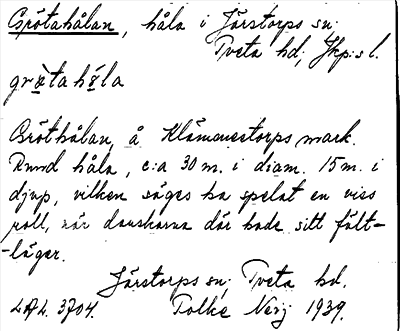 Grötahålan, håla i Järstorps sn.
Tveta hd, Jkp:s l.
grø̀tahå̀la
Gröthålan å Klämmestorps mark.
Rund håla, c:a 30 m. i diam. 15 m. i
djup, vilken säges ha spelat en viss
roll, när danskarna där hade sitt fält-
-läger.
Järstorps sn. Tveta hd.
L.A.L. 3704. Folke Nerj 1939.